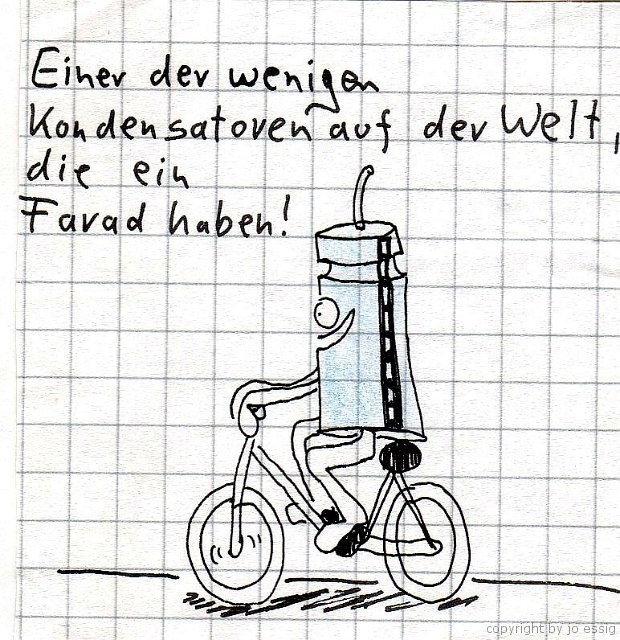 Einer der wenigen
Kondensatoren auf der Welt,
die ein
Farad haben!
copyright by jo essig